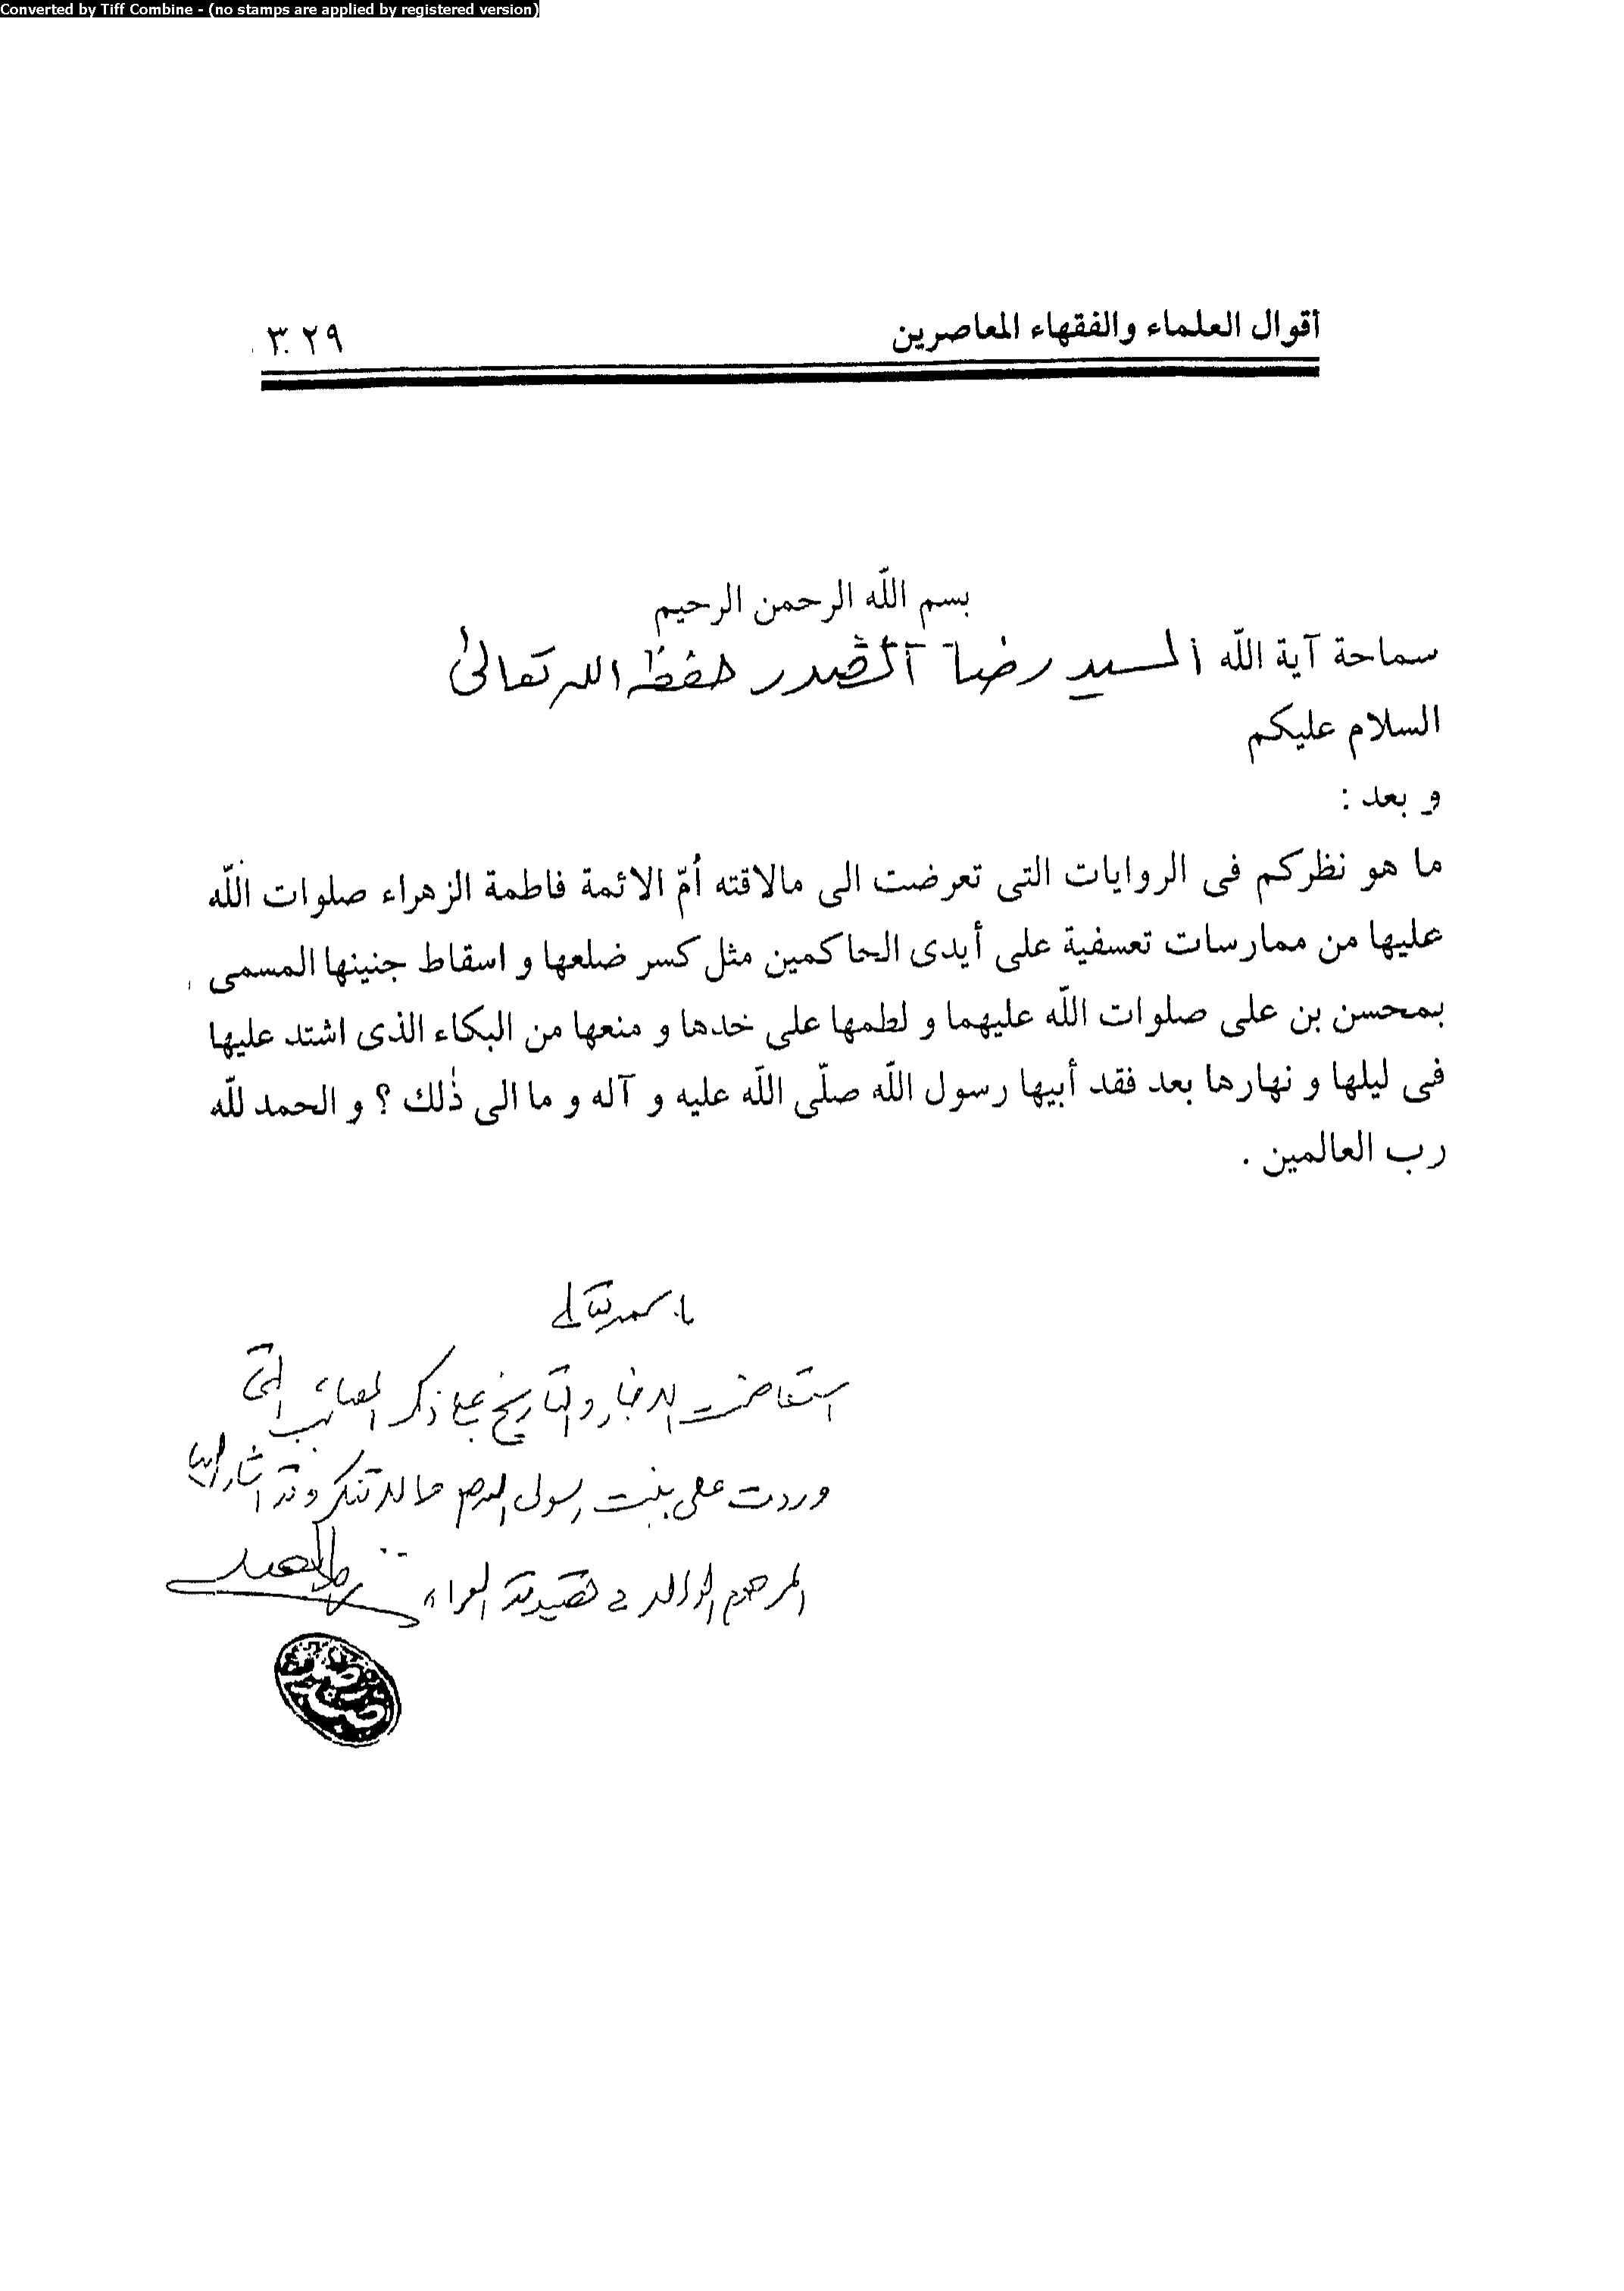 Converted by Tiff Combine - (no stamps are applied by registered version)
أقوال العلماء والفقهاء المعاصرين
٣٠٢٩
بسم اللّه الرحمن الرحيم
سماحة آية اللّه السيد رضا الصدر حفظه الله تعالى
السلام عليكم
و بعد :
ما هو نظركم فى الروايات التى تعرضت الى مالاقته اُمّ الائمة فاطمة الزهراء صلوات اللّه
عليها من ممارسات تعسفية على أيدى الحاكمين مثل كسر ضلعها و اسقاط جنينها المسمى
بمحسن بن على صلوات اللّه عليهما و لطمها على خدها و منعها من البكاء الذى اشتد عليها
فى ليلها و نهارها بعد فقد أبيها رسول اللّه صلّى اللّه عليه و آله و ما الى ذٰلك ؟ و الحمد للّه
رب العالمين .
باسمه تعالى
استفاضت الاخبار والتاريخ على ذكر المصائب التى
وردت على بنت رسول الله ص مما لا تنكر وقد اشار اليها
المرحوم الوالد فى قصيدته الغراء
رضا الصدر